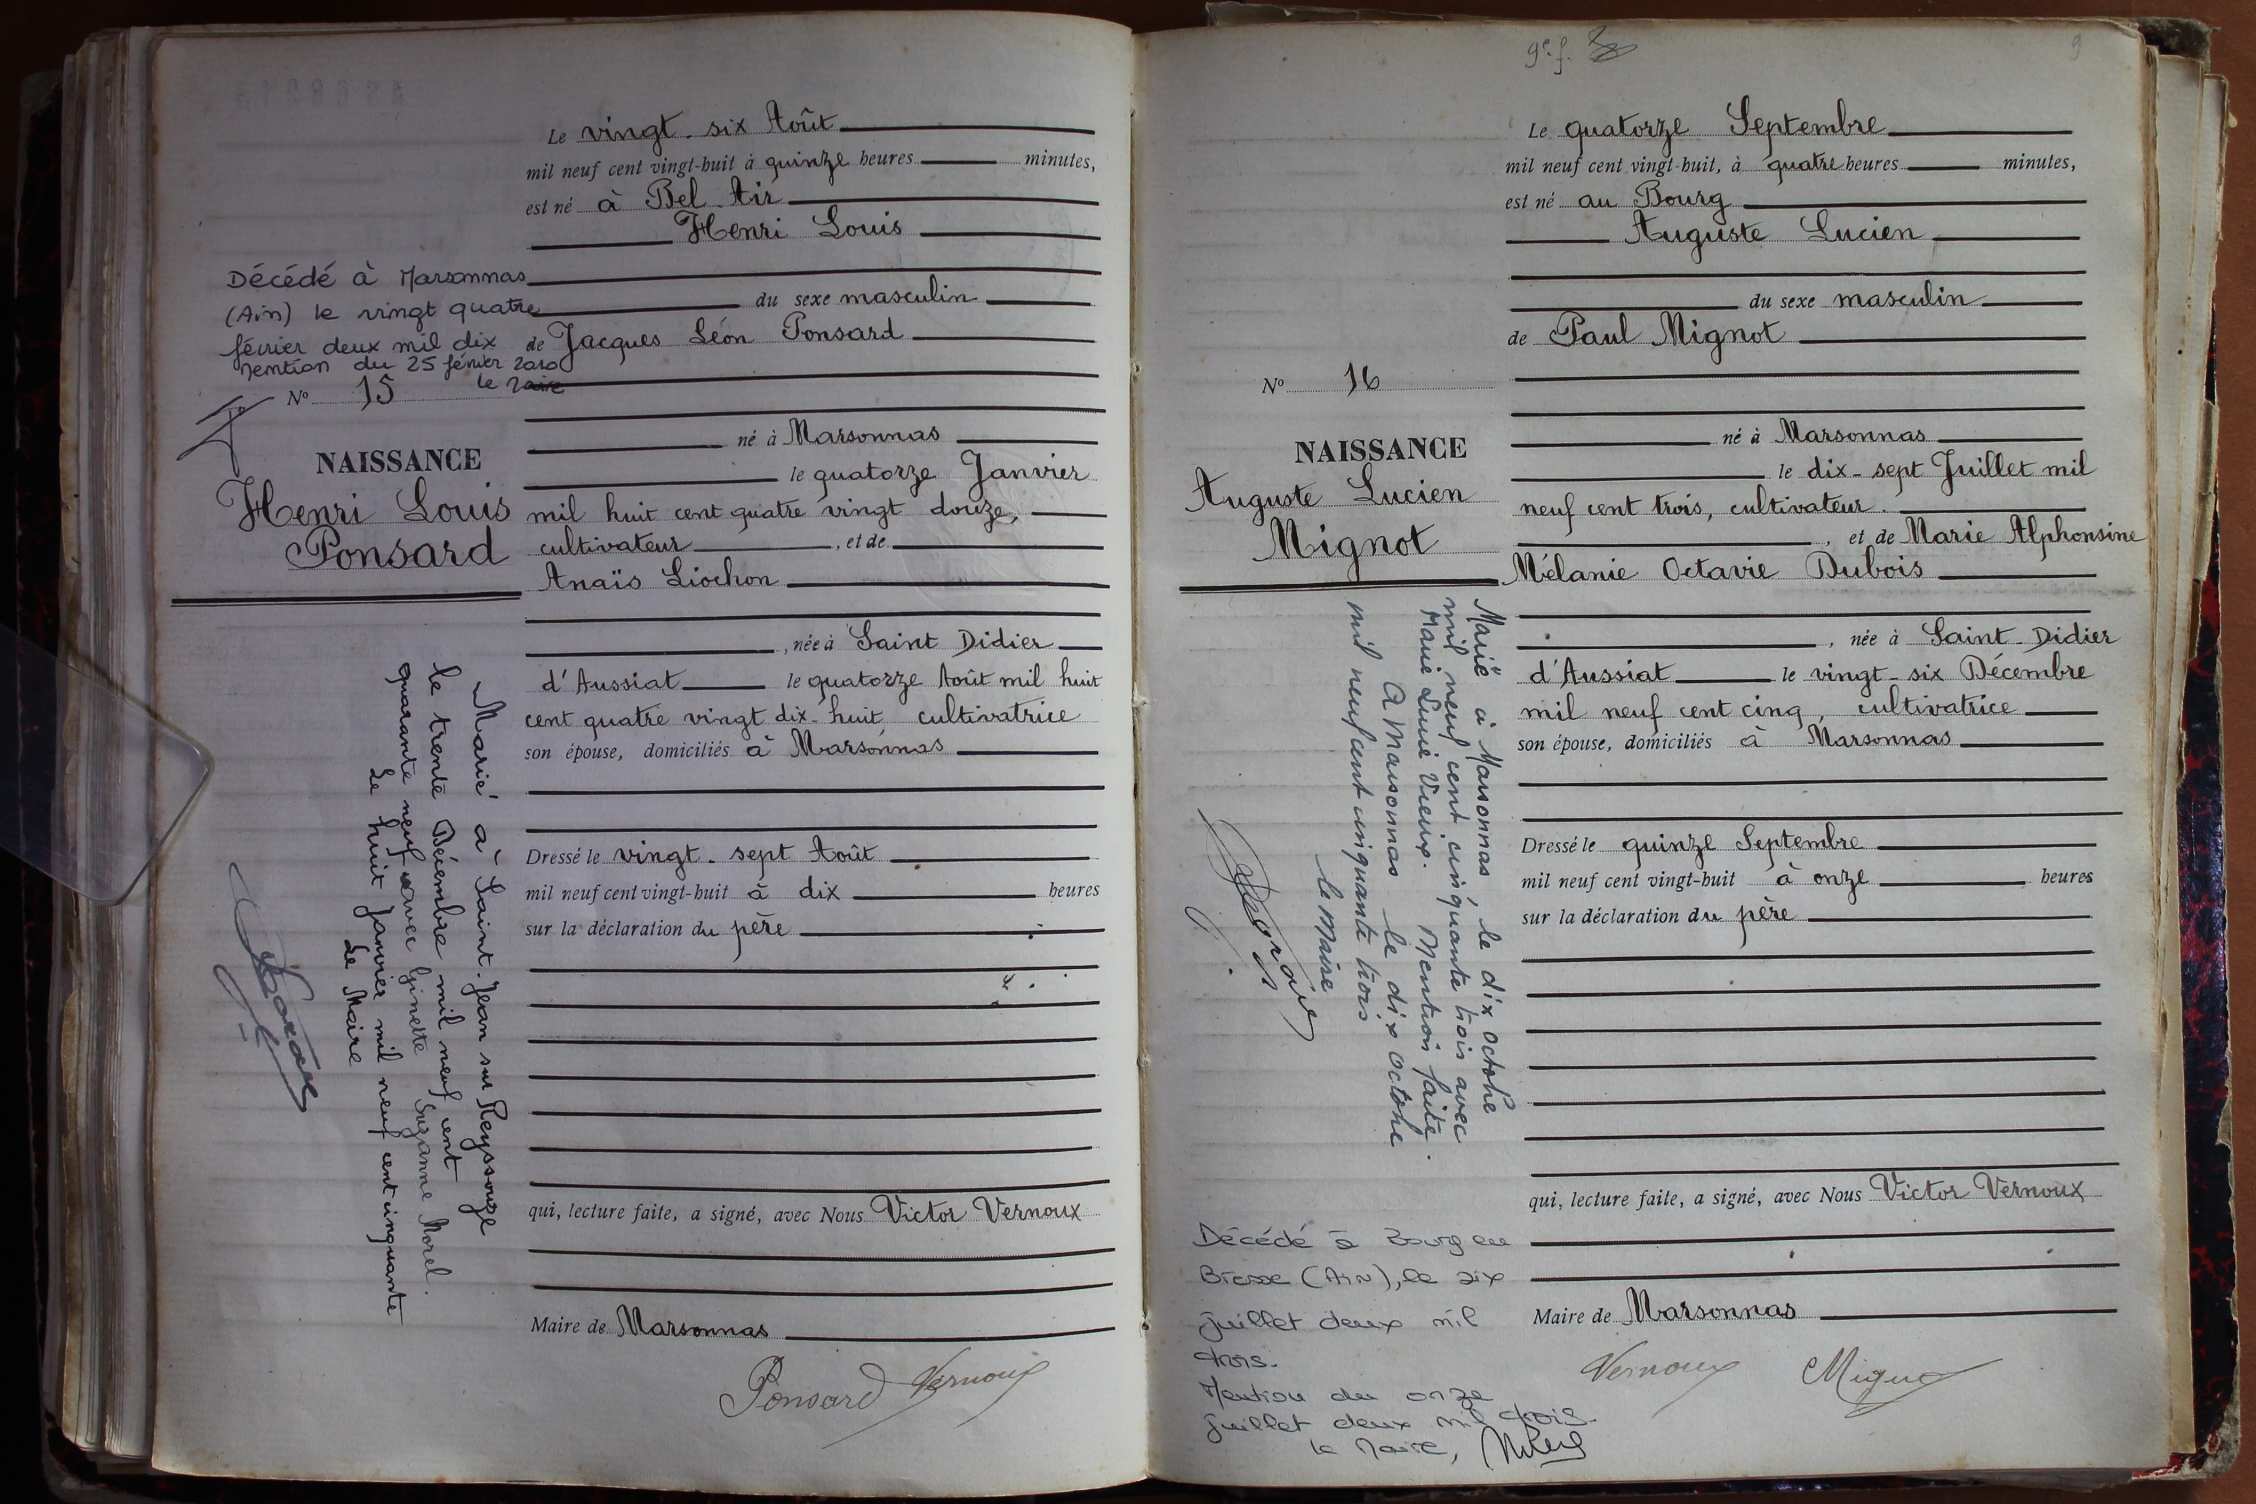 Le vingt-six Août
mil neuf cent vingt-huit à quinze heures minutes,
est né à Bel Air
Henri Louis
du sexe masculin
de Jacques Léon Ponsard
né à Marsonnas
le quatorze Janvier
mil huit cent quatre vingt douze,
cultivateur , et de
Anaïs Liochon
, née à Saint Didier
d'Aussiat le quatorze Août mil huit
cent quatre vingt dix-huit cultivatrice
son épouse, domiciliés à Marsonnas
Dressé le vingt-sept Août
mil neuf cent vingt-huit à dix heures
sur la déclaration du père
qui, lecture faite, a signé, avec Nous Victor Vernoux
Maire de Marsonnas
Ponsard Vernoux
Décédé à Marsonnas
(Ain) le vingt quatre
février deux mil dix
mention du 25 février 2010
le Maire
No 15
NAISSANCE
Henri Louis
Ponsard
Marié à Saint-Jean sur Reyssouze
le trente Décembre mil neuf cent
quarante neuf avec Ginette Suzanne Morel.
Le huit Janvier mil neuf cent cinquante
Le Maire
9e f.
9
Le quatorze Septembre
mil neuf cent vingt-huit, à quatre heures minutes,
est né au Bourg
Auguste Lucien
du sexe masculin
de Paul Mignot
né à Marsonnas
le dix-sept Juillet mil
neuf cent trois, cultivateur.
, et de Marie Alphonsine
Mélanie Octavie Dubois
, née à Saint-Didier
d'Aussiat le vingt-six Décembre
mil neuf cent cinq, cultivatrice
son épouse, domiciliés à Marsonnas
Dressé le quinze Septembre
mil neuf cent vingt-huit à onze heures
sur la déclaration du père
qui, lecture faite, a signé, avec Nous Victor Vernoux
Maire de Marsonnas
Vernoux Mignot
No 16
NAISSANCE
Auguste Lucien
Mignot
Marié à Marsonnas, le dix octobre
mil neuf cent cinquante trois avec
Marie Lucie Vieux. Mention faite
A Marsonnas le dix octobre
mil neuf cent cinquante trois
le Maire
Décédé à Bourg en
Bresse (Ain), le six
juillet deux mil
trois.
Mention du onze
juillet deux mil trois.
le Maire,